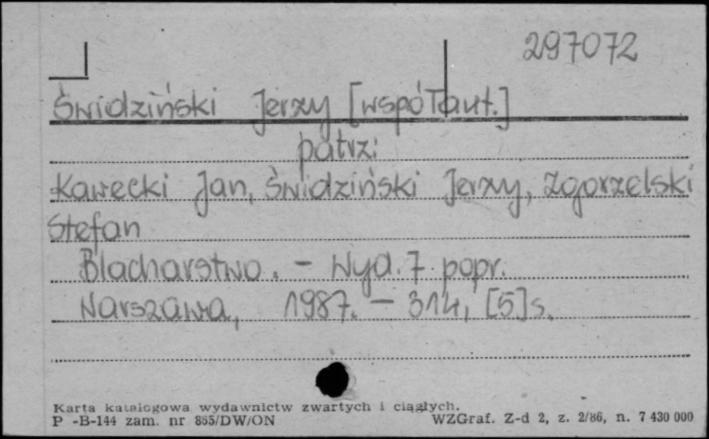 297072
Świdziński Jerzy [współaut.]
patrz:
Kawecki Jan, Świdziński Jerzy, Zgorzelski
Stefan
Blacharstwo. - Wyd. 7 popr.
Warszawa, 1987. - 314, [5] s.
Karta katalogowa wydawnictw zwartych i ciągłych.
P -B-144 zam. nr 865/DW/ON WZGraf. Z-d 2, z. 2/86, n. 7 430 000